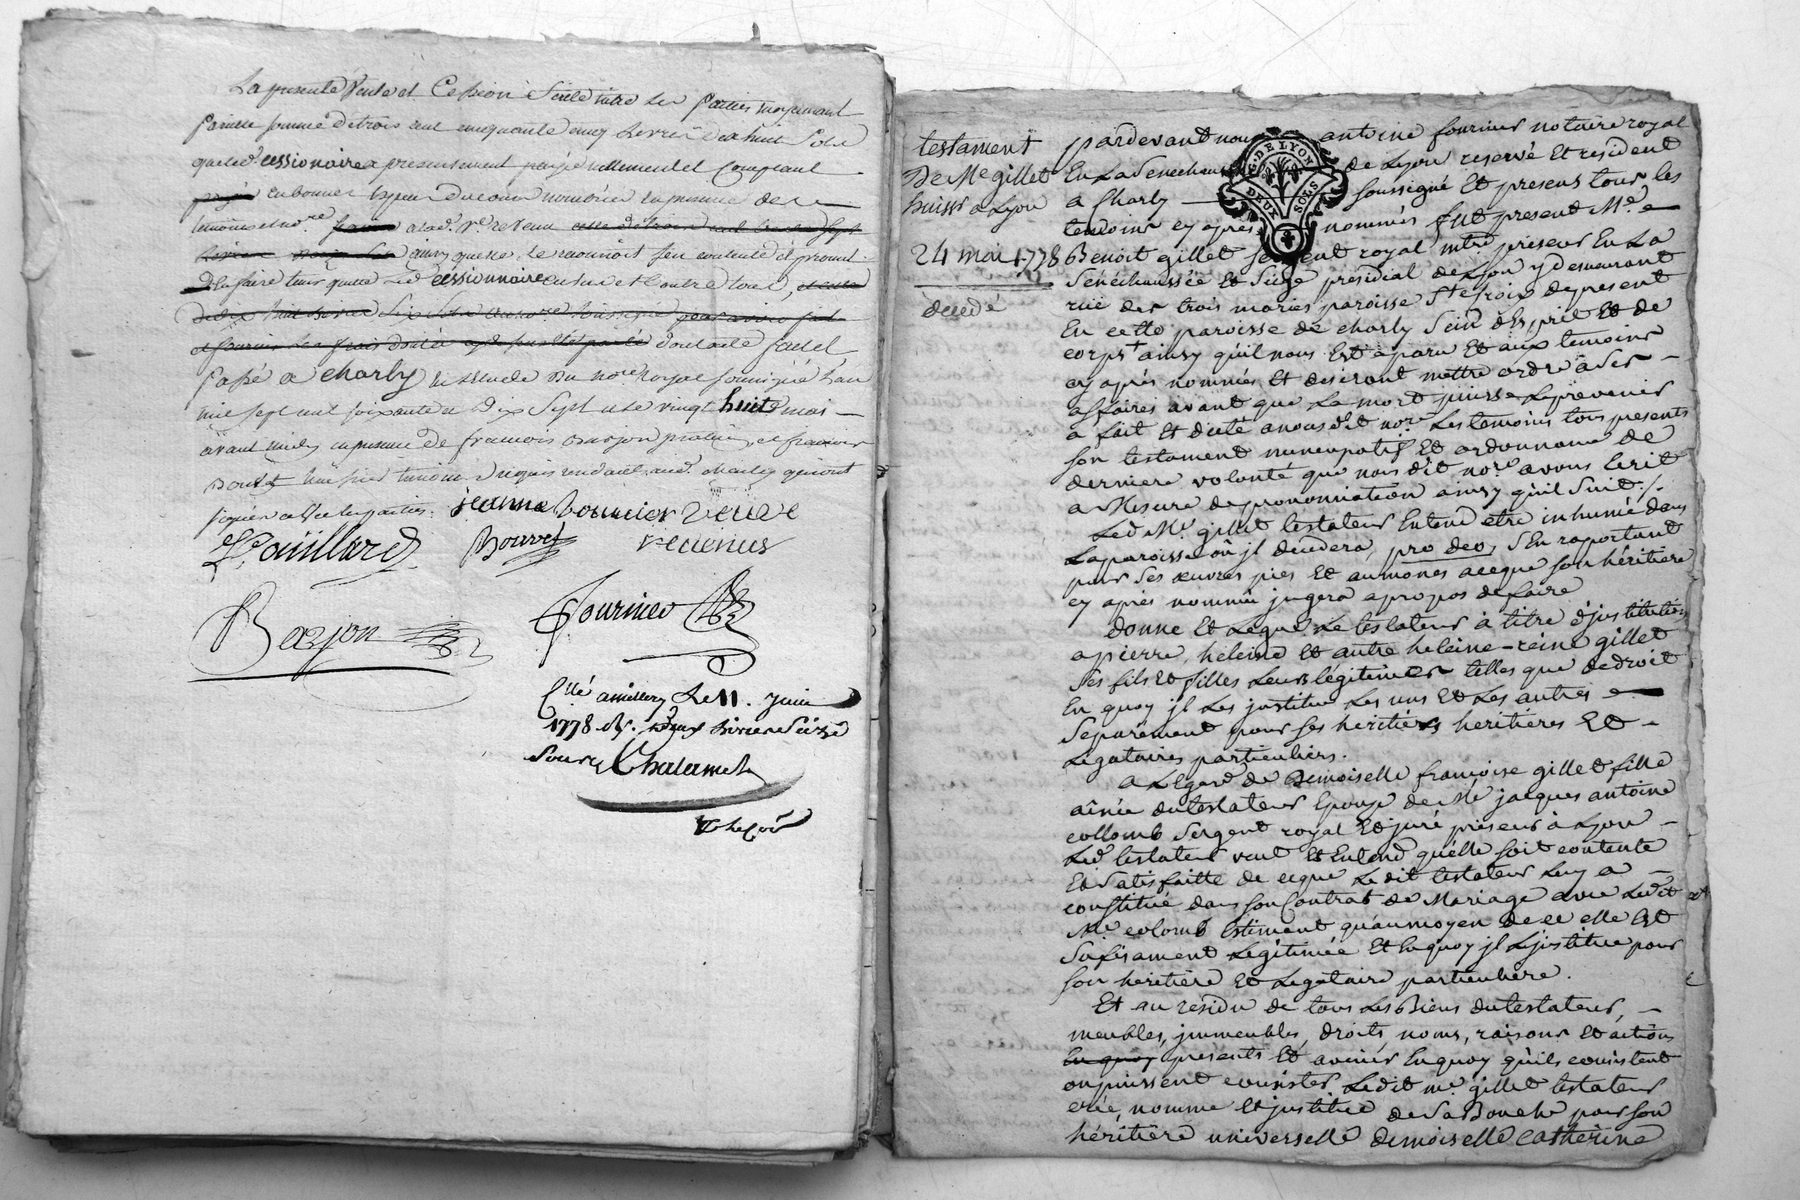 La presente Vente et Cession Faite entre les Parties moyennant
pareille somme de trois cent cinquante cinq Livres dix huit Sols
que led. cessionaire a presentement payé reellement et Comptant
en bonnes especes du cours en presence de
temoins et no.re a lad. v.e
ainsy quelle le reconnoit s'en contente et promet
De le faire tenir quitte Led cessionnaire envers et Contre tous,
dont acte fait et
passé a charly etude du no.re royal soussigné L'an
mil sept cent soixante et Dix Sept et le vingt huit mai
avant midy en presence de francois Barjon praticien et
Bouvet temoins requis aud. charly qui ont
signés avec les parties. jeanne bournier veuve
Gaillard Bouvet
Barjon
fournier
C.llé a millery Le 11. juin
1778
Sous Chalamel
testament
De Me gillet
huiss.r a Lyon
24 mai 1778
decedé
G. DE LYON
DEUX SOLS
pardevant nous antoine fournier notaire royal
En La Senechaussée de Lyon reservé Et resident
a Charly soussigné Et presens tous les
temoins cy après nommés fut present Me
Benoit gillet sergent royal mtre priseur En La
Sénéchaussée Et Siège présidial de Lyon y demeurant
rüe des trois maries paroisse Ste Croix de present
En cette paroisse de charly Sain d'Esprit Et de
corps ainsy qu'il nous Est aparu Et aux temoins
cy après nommés Et desirant mettre ordre à Ses
affaires avant que La mort puisse Le prévenir
a fait Et dicté a nousdit nore Les temoins tous presents
son testament nuncupatif Et ordonnance de
derniere volonté que nous dit nore avons Ecrit
a Mesure de prononciation ainsy qu'il Suit./.
Led. Me. gillet testateur Entend etre inhumé dans
La paroisse où jl decedera, pro deo, S'En raportant
pour Ses œuvres pies Et aumones aceque Son héritiere
cy après nommée jugera apropos de faire
donne Et Legue Le testateur à titre d'jnstitution
a pierre, heleine Et autre heleine-reine gillet
Ses fils Et filles Leurs légitimes telles que de droit
En quoy jl Les jnstitue Les uns Et Les autres
Séparément pour Ses heritiers heritières Et
Légataires particuliers.
a L'Egard de Demoiselle françoise gillet fille
aînée du testateur Epouse de Me jacques antoine
collomb Sergent royal Et juré priseur à Lyon
Led. testateur veut Et Entend qu'elle soit contente
Et Satisfaitte de ceque Le dit testateur Luy a
constitué dans son Contrat de Mariage avec Ledit
Me colomb Estimant qu'au moyen de ce elle Est
Sufisament Légitimée Et En quoy jl L'jnstitue pour
son heritière Et Légataire particulière.
Et au residu de tous Les Biens du testateur,
meubles, jmmeubles, droits noms, raisons Et actions
En quoy presents Et avenir En quoy qu'ils consistent
ou puissent consister Ledit me. gillet testateur
crée, nomme Et jnstitue de Sa Bouche pour Son
héritière universelle demoiselle catherine